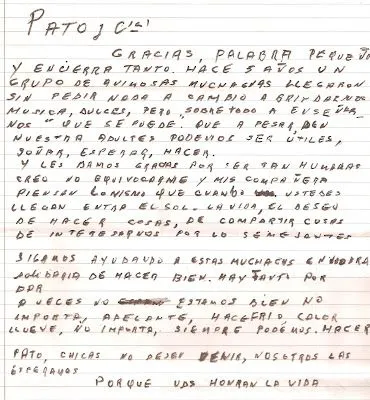 PATO y Cia!
GRACIAS, PALABRA PEQUEÑA
Y ENCIERRA TANTO. HACE 5 AÑOS UN
GRUPO DE ANIMOSAS MUCHACHAS LLEGARON
SIN PEDIR NADA A CAMBIO A BRINDARNOS
MUSICA, DULCES, PERO, SOBRETODO A ENSEÑAR
NOS QUE SE PUEDE. QUE A PESAR DEN
NUESTRA ADULTES PODEMOS SER ÚTILES,
SOÑAR, ESPERAR, HACER.
Y LES DAMOS GRACIAS POR SER TAN HUMANAS
CREO NO EQUIVOCARME Y MIS COMPAÑERA
PIENSAN LO MISMO QUE CUANDO USTEDES
LLEGAN ENTRA EL SOL. LA VIDA, EL DESEO
DE HACER COSAS, DE COMPARTIR COSAS
DE INTERESARNOS POR LO SEMEJANTES
SIGAMOS AYUDANDO A ESTAS MUCHACHAS EN OBRA
SOLIDARIA DE HACER BIEN. HAY TANTO POR
DAR
A VECES NO ESTAMOS BIEN NO
IMPORTA, ADELANTE, HACE FRIO, CALOR
LLUEVE, NO IMPORTA, SIEMPRE PODEMOS. HACER
PATO, CHICAS NO DEJEN DE VENIR, NOSOTROS LAS
ESPERAMOS
PORQUE UDS HONRAN LA VIDA